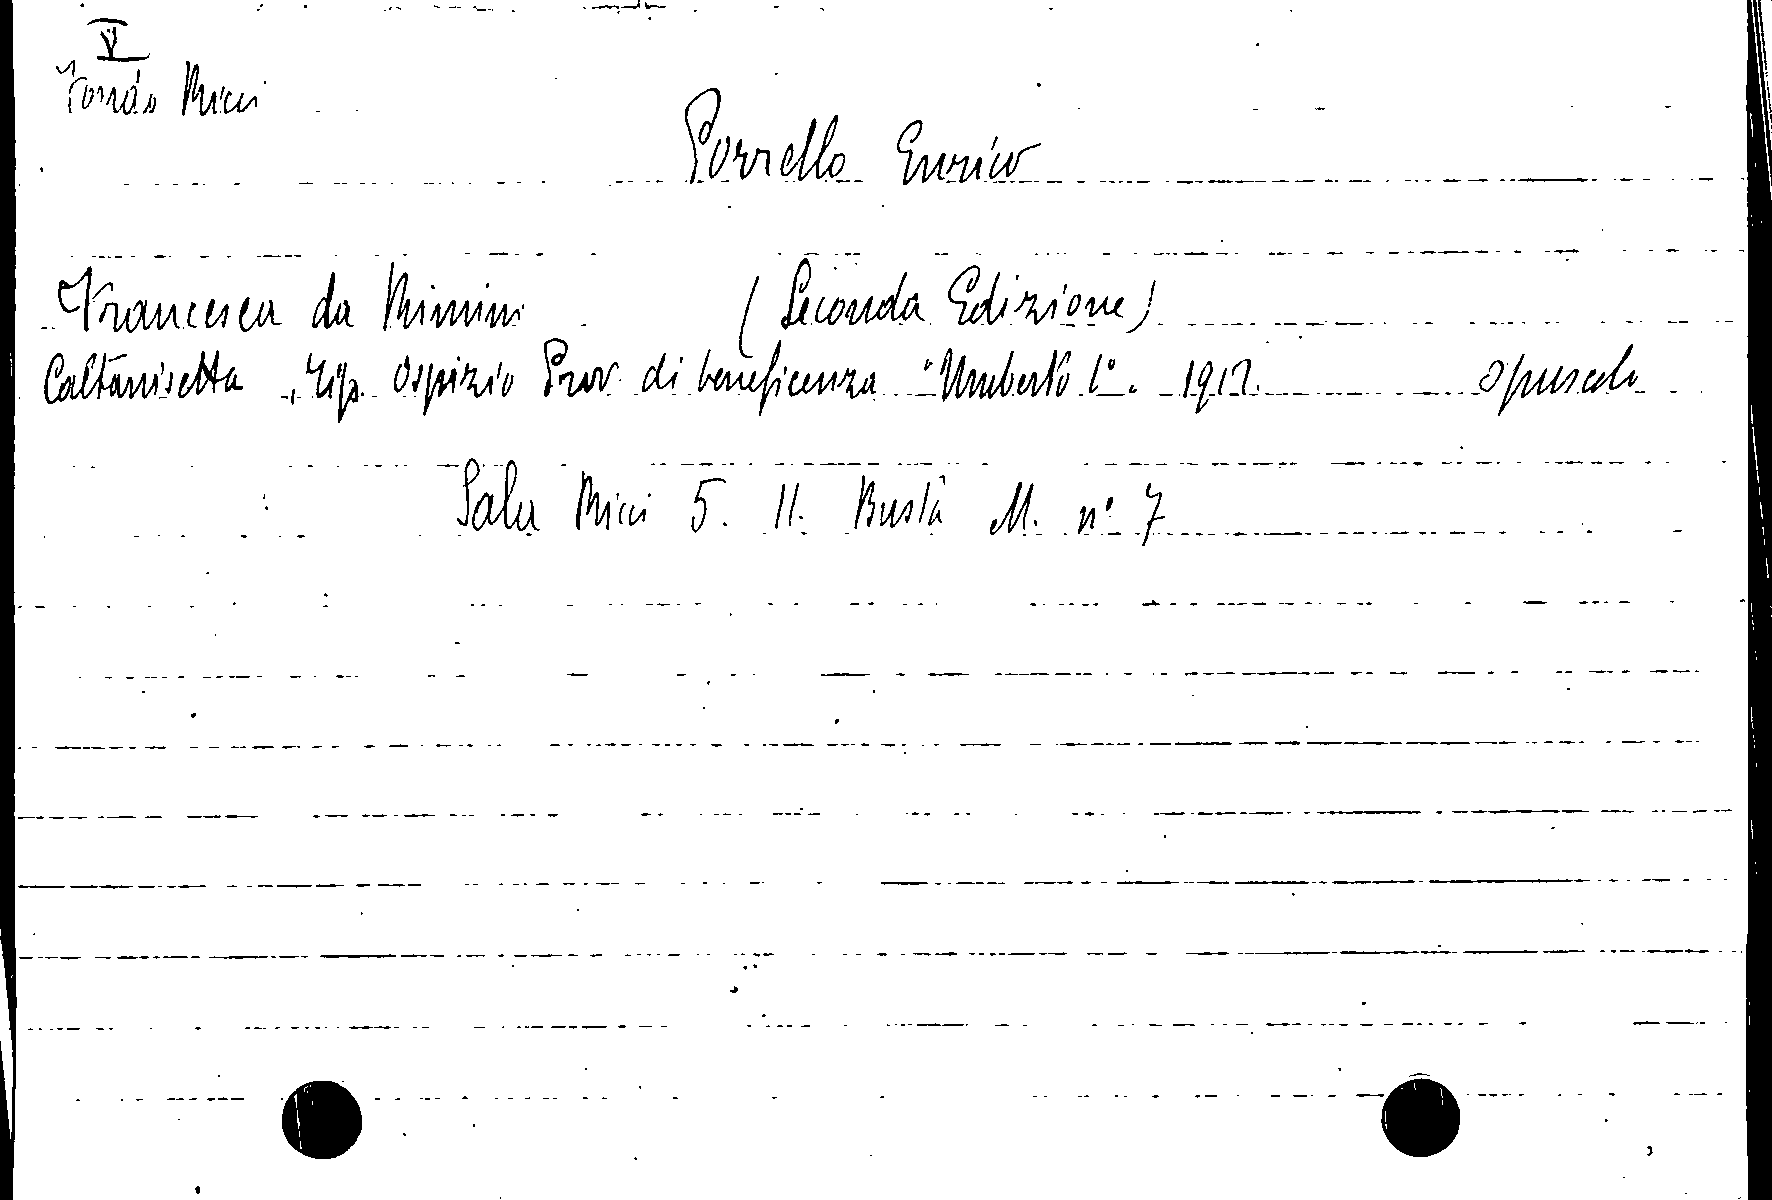 V
Fondo Ricci
Porrello Enrico
Francesca da Rimini (Seconda Edizione)
Caltanisetta, Tip. Ospizio Prov. di beneficenza "Umberto I°. 1912. opuscolo
Sala Ricci 5. II. Busta M. n° 7